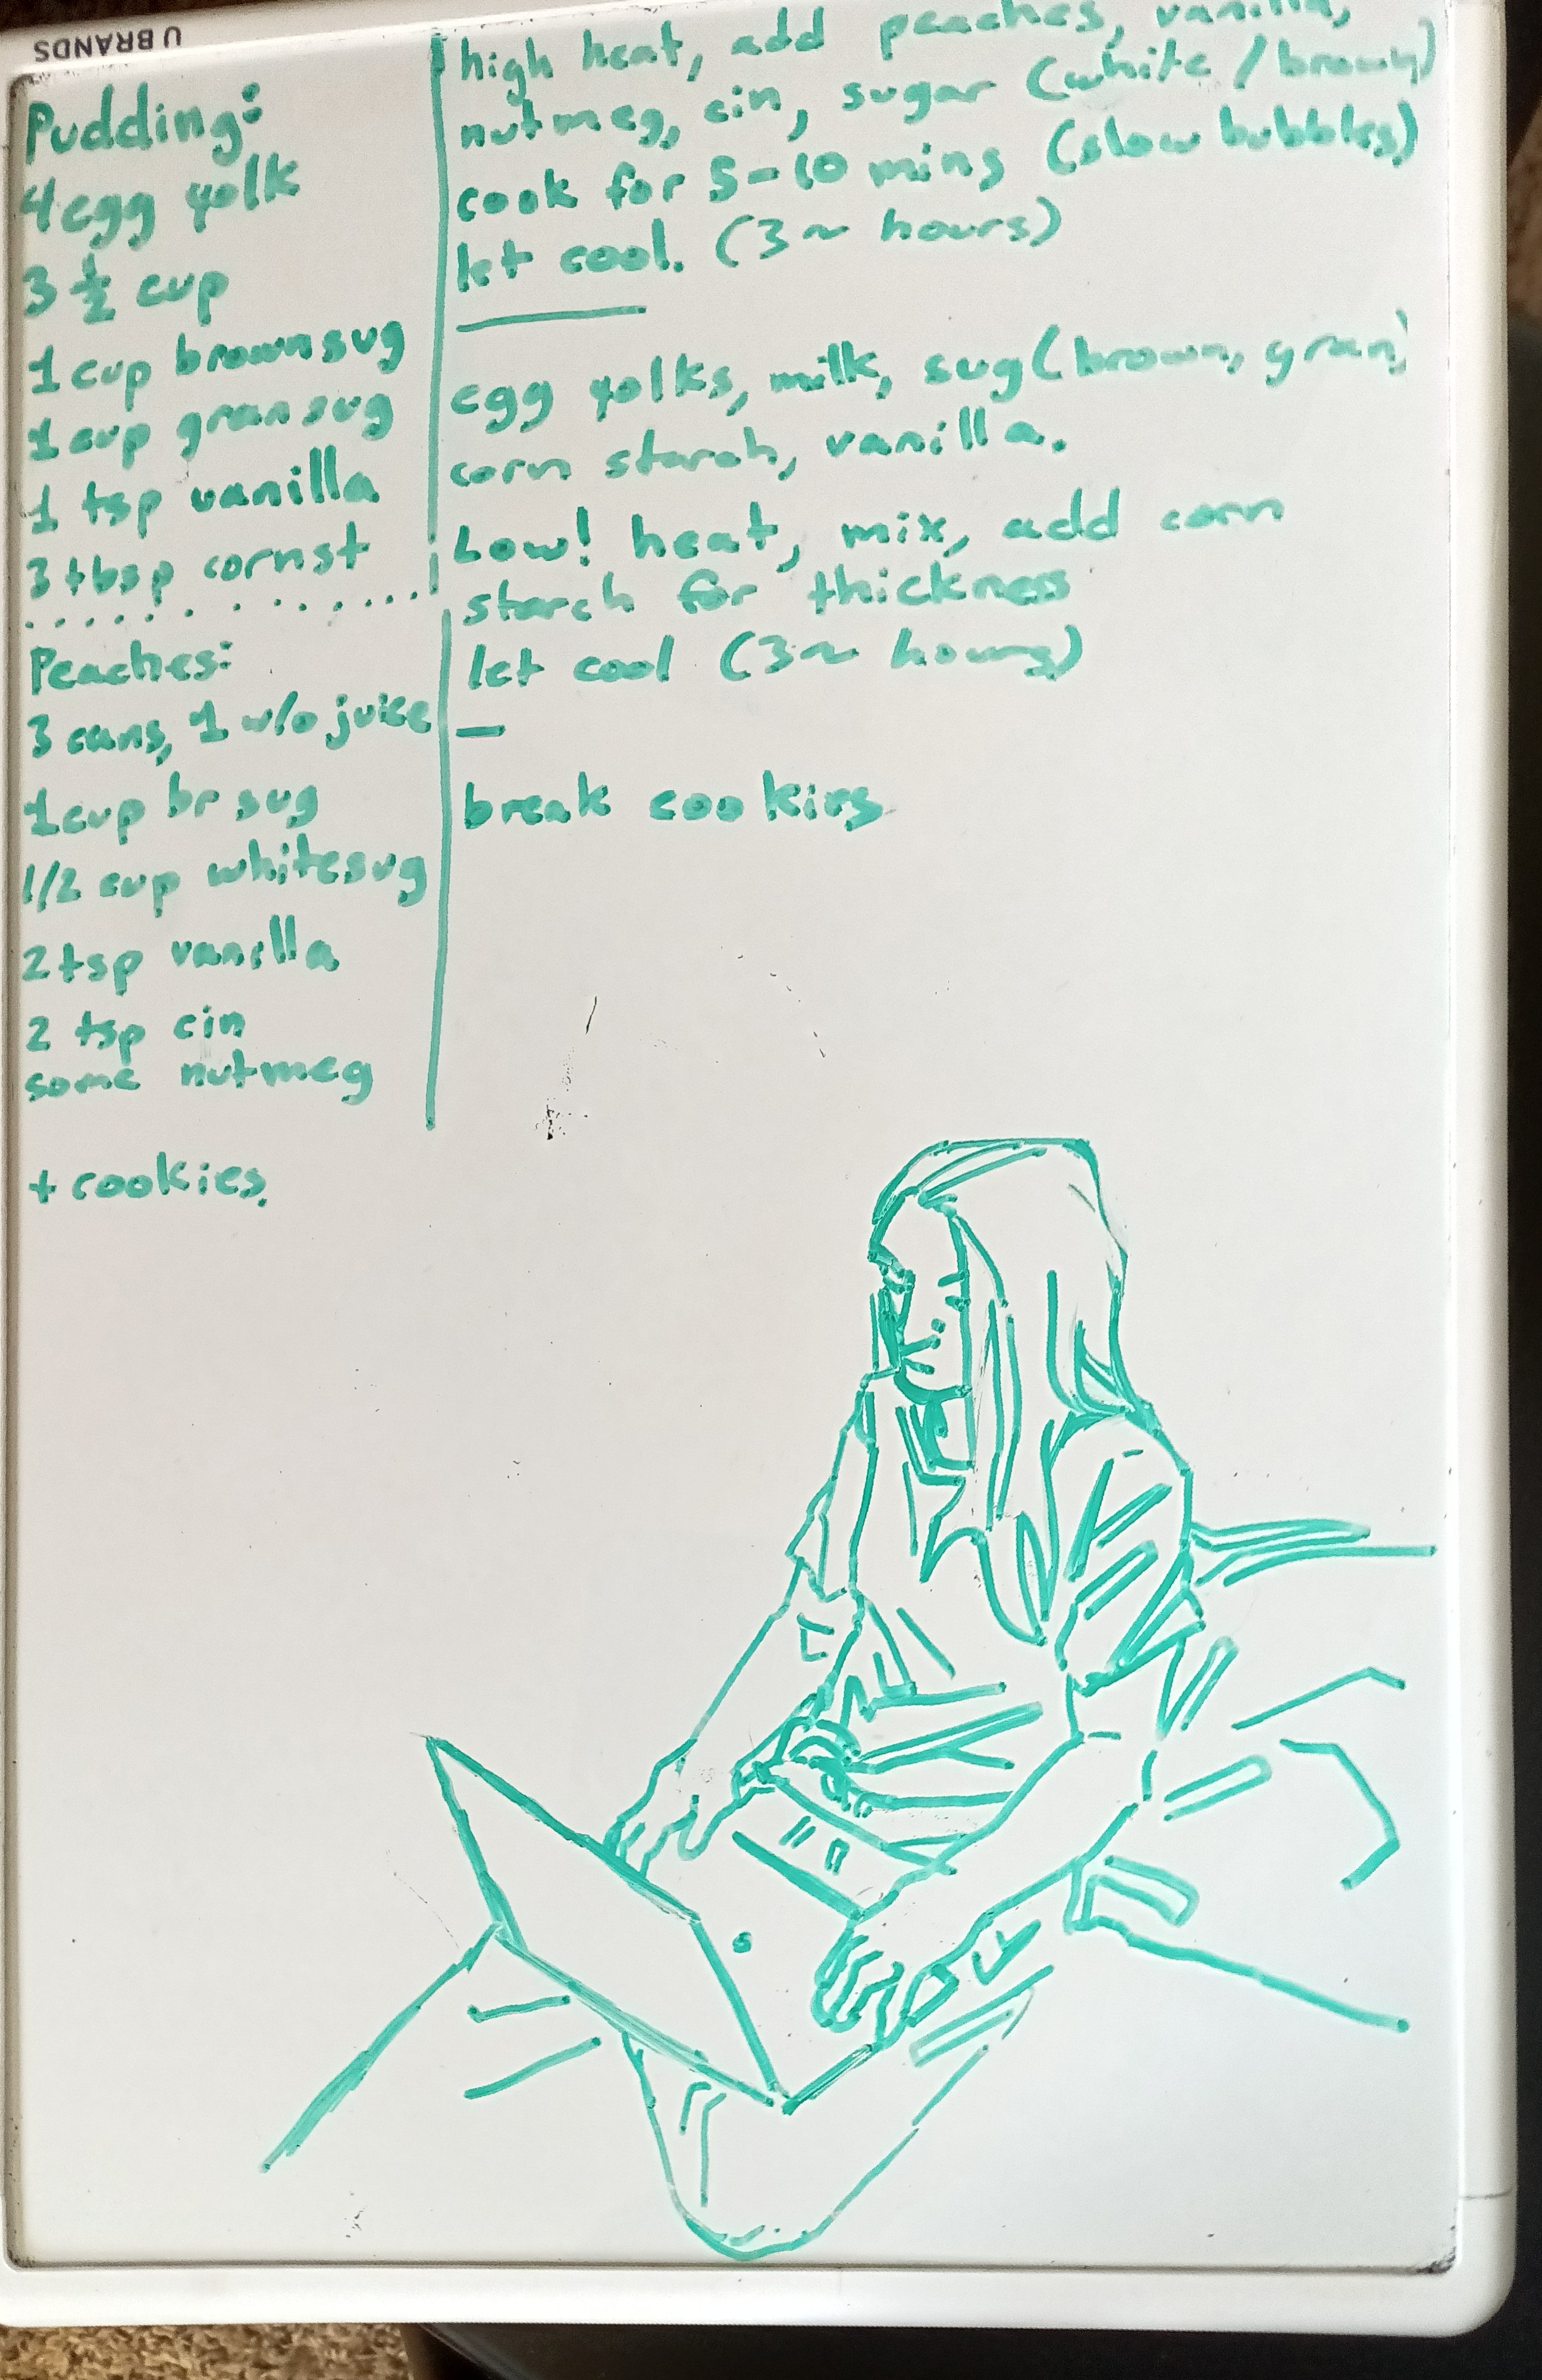 U BRANDS
Pudding:
4 egg yolk
3 1/2 cup
1 cup brownsug
1 cup gransug
1 tsp vanilla
3 tbsp cornst
Peaches:
3 cans, 1 w/o juice
1 cup br sug
1/2 cup whitesug
2 tsp vanilla
2 tsp cin
some nutmeg
+ cookies
high heat, add peaches, vanilla,
nutmeg, cin, sugar (white / brown)
cook for 5-10 mins (slow bubbles)
let cool. (3~ hours)
egg yolks, milk, sug (brown, gran)
corn starch, vanilla.
Low! heat, mix, add corn
starch for thickness
let cool (3~ hours)
break cookies